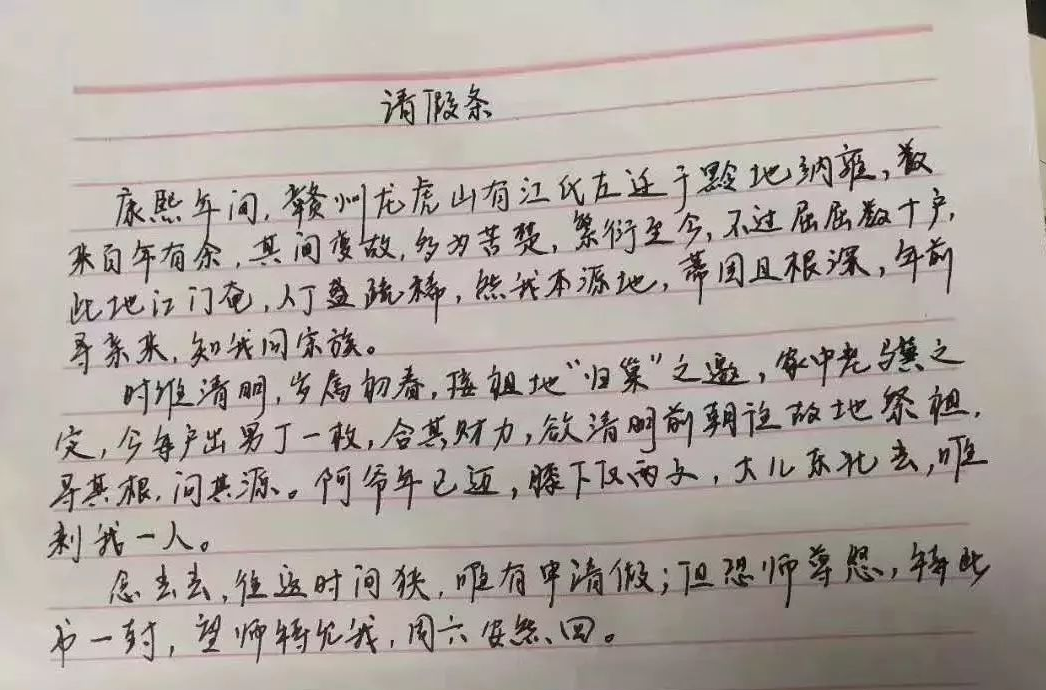 请假条
康熙年间，赣州龙虎山有江氏左迁于黔地纳雍，数
来百年有余，其间变故，多为苦楚，繁衍至今，不过屈屈数十户，
此地江门奄，人丁益疏稀，然我本源地，蒂固且根深，年前
寻亲来，知我同宗族。
时维清明，岁属初春，接祖地“归巢”之邀，家中老骥之
定，今每户出男丁一枚，合其财力，欲清明前朝往故地祭祖，
寻其根，问其源。阿爷年已迈，膝下仅两丁，大儿东北去，唯
剩我一人。
念去去，往返时间狭，唯有申请假；但恐师尊怒，特此
书一封，望师特允我，周六安然回。